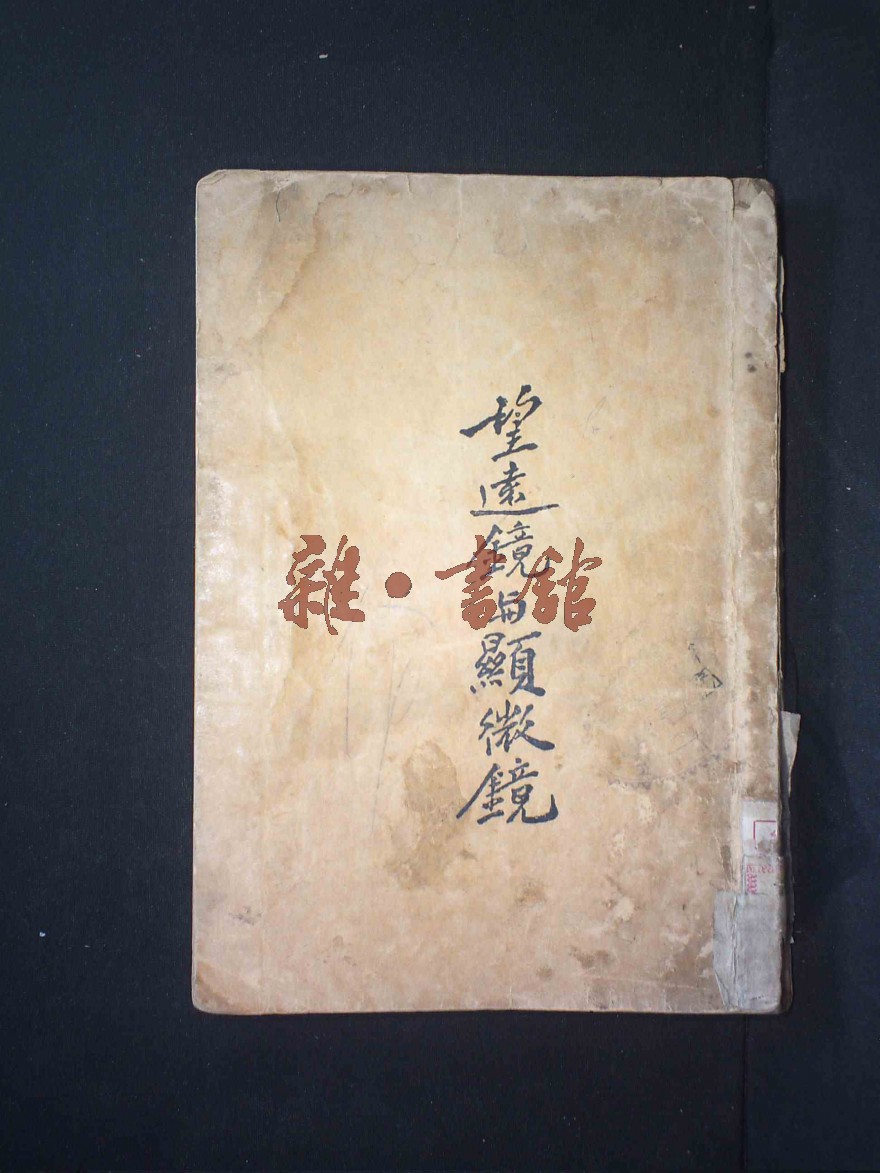 望遠鏡与顯微鏡
雜·書館